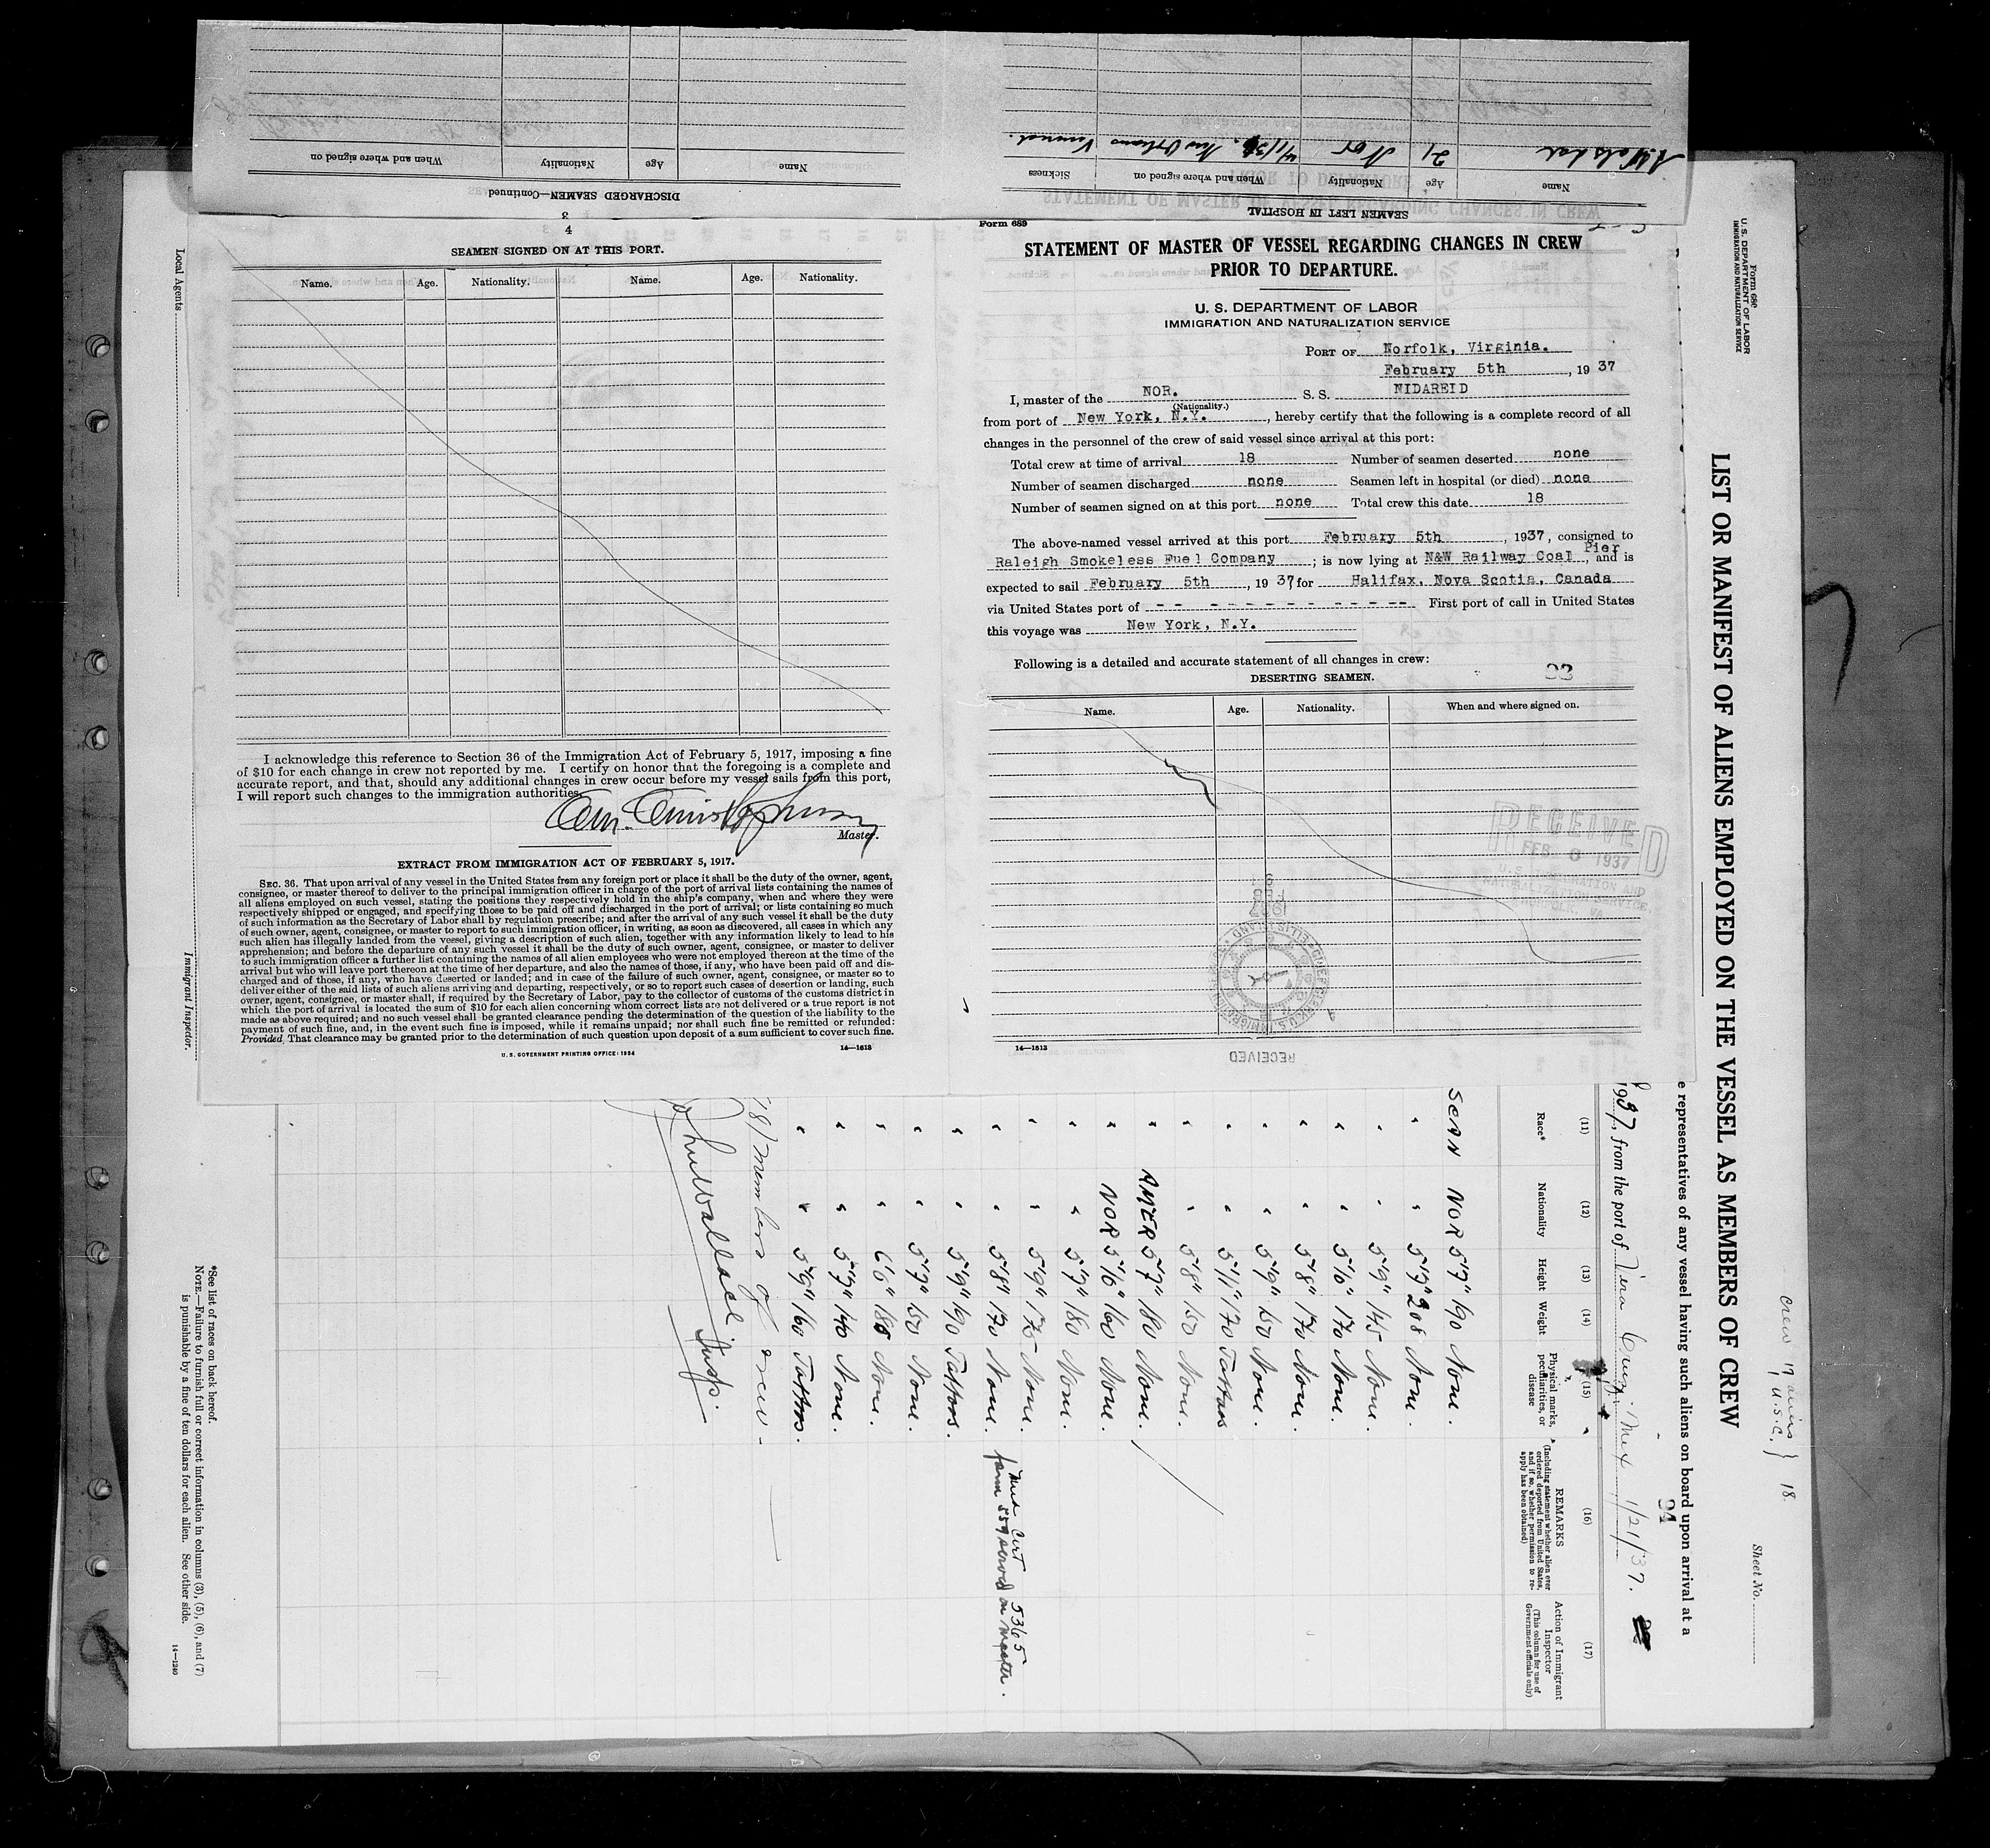 DISCHARGED SEAMEN—Continued
Name
Age
Nationality
When and where signed on
SEAMEN LEFT IN HOSPITAL
Name
Age
Nationality
When and where signed on
Sickness
21 Nor New Orleans
3
4
SEAMEN SIGNED ON AT THIS PORT.
Name. Age. Nationality. Name. Age. Nationality.
I acknowledge this reference to Section 36 of the Immigration Act of February 5, 1917, imposing a fine
of $10 for each change in crew not reported by me. I certify on honor that the foregoing is a complete and
accurate report, and that, should any additional changes in crew occur before my vessel sails from this port,
I will report such changes to the immigration authorities.
Master.
EXTRACT FROM IMMIGRATION ACT OF FEBRUARY 5, 1917.
SEC. 36. That upon arrival of any vessel in the United States from any foreign port or place it shall be the duty of the owner, agent,
consignee, or master thereof to deliver to the principal immigration officer in charge of the port of arrival lists containing the names of
all aliens employed on such vessel, stating the positions they respectively hold in the ship's company, when and where they were
respectively shipped or engaged, and specifying those to be paid off and discharged in the port of arrival; or lists containing so much
of such information as the Secretary of Labor shall by regulation prescribe; and after the arrival of any such vessel it shall be the duty
of such owner, agent, consignee, or master to report to such immigration officer, in writing, as soon as discovered, all cases in which any
such alien has illegally landed from the vessel, giving a description of such alien, together with any information likely to lead to his
apprehension; and before the departure of any such vessel it shall be the duty of such owner, agent, consignee, or master to deliver
to such immigration officer a further list containing the names of all alien employees who were not employed thereon at the time of the
arrival but who will leave port thereon at the time of her departure, and also the names of those, if any, who have been paid off and dis-
charged and of those, if any, who have deserted or landed; and in case of the failure of such owner, agent, consignee, or master so to
deliver either of the said lists of such aliens arriving and departing, respectively, or so to report such cases of desertion or landing, such
owner, agent, consignee, or master shall, if required by the Secretary of Labor, pay to the collector of customs of the customs district in
which the port of arrival is located the sum of $10 for each alien concerning whom correct lists are not delivered or a true report is not
made as above required; and no such vessel shall be granted clearance pending the determination of the question of the liability to the
payment of such fine, and, in the event such fine is imposed, while it remains unpaid; nor shall such fine be remitted or refunded:
Provided, That clearance may be granted prior to the determination of such question upon deposit of a sum sufficient to cover such fine.
U. S. GOVERNMENT PRINTING OFFICE: 1934
14—1513
Form 689
STATEMENT OF MASTER OF VESSEL REGARDING CHANGES IN CREW
PRIOR TO DEPARTURE.
U. S. DEPARTMENT OF LABOR
IMMIGRATION AND NATURALIZATION SERVICE
PORT OF Norfolk, Virginia.
February 5th, 19 37
I, master of the NOR. S. S. NIDAREID
(Nationality.)
from port of New York, N.Y., hereby certify that the following is a complete record of all
changes in the personnel of the crew of said vessel since arrival at this port:
Total crew at time of arrival 18 Number of seamen deserted none
Number of seamen discharged none Seamen left in hospital (or died) none
Number of seamen signed on at this port none Total crew this date 18
The above-named vessel arrived at this port February 5th, 1937, consigned to
Raleigh Smokeless Fuel Company; is now lying at N&W Railway Coal Pier, and is
expected to sail February 5th, 19 37 for Halifax, Nova Scotia, Canada
via United States port of -- - - - - - - - - -- First port of call in United States
this voyage was New York, N.Y.
Following is a detailed and accurate statement of all changes in crew:
DESERTING SEAMEN.
Name. Age. Nationality. When and where signed on.
RECEIVED
FEB 1937
U. S. IMMIGRATION AND
NATURALIZATION SERVICE
14—1513
RECEIVED
Form 689
U. S. DEPARTMENT OF LABOR
IMMIGRATION AND NATURALIZATION SERVICE
Sheet No.
Crew 17 aliens
1 U.S.C. } 18
LIST OR MANIFEST OF ALIENS EMPLOYED ON THE VESSEL AS MEMBERS OF CREW
e representatives of any vessel having such aliens on board upon arrival at a
94
1937, from the port of Vera Cruz, Mex 1/21/37.
(11) (12) (13) (14) (15) (16) (17)
Race*
Nationality
Height
Weight
Physical marks, peculiarities, or disease
REMARKS
(Including statement whether alien ever ordered deported from United States, and if so, whether permission to re-apply has been obtained)
Action of Immigrant Inspector
(This column for use of Government officials only)
SCAN NOR 5'7" 190 None.
" " 5'7" 208 None.
" " 5'9" 145 None.
" " 5'10" 170 None.
" " 5'8" 170 None.
" " 5'9" 150 None.
" " 5'11" 170 Tattoos
" " 5'8" 150 None.
" AMER 5'7" 180 None.
" NOR 5'10" 160 None.
" " 5'7" 180 None.
" " 5'9" 175 None.
" " 5'8" 170 None. Med Cert 5365
form 559 served on master.
" " 5'9" 190 Tattoos.
" " 5'7" 150 None.
" " 6'0" 180 None.
" " 5'7" 140 None.
" " 5'9" 160 Tattoos.
(18) members of crew
John Wallace Insp.
Local Agents
Immigrant Inspector.
*See list of races on back hereof.
NOTE.—Failure to furnish full or correct information in columns (3), (5), (6), and (7)
is punishable by a fine of ten dollars for each alien. See other side.
14—1240